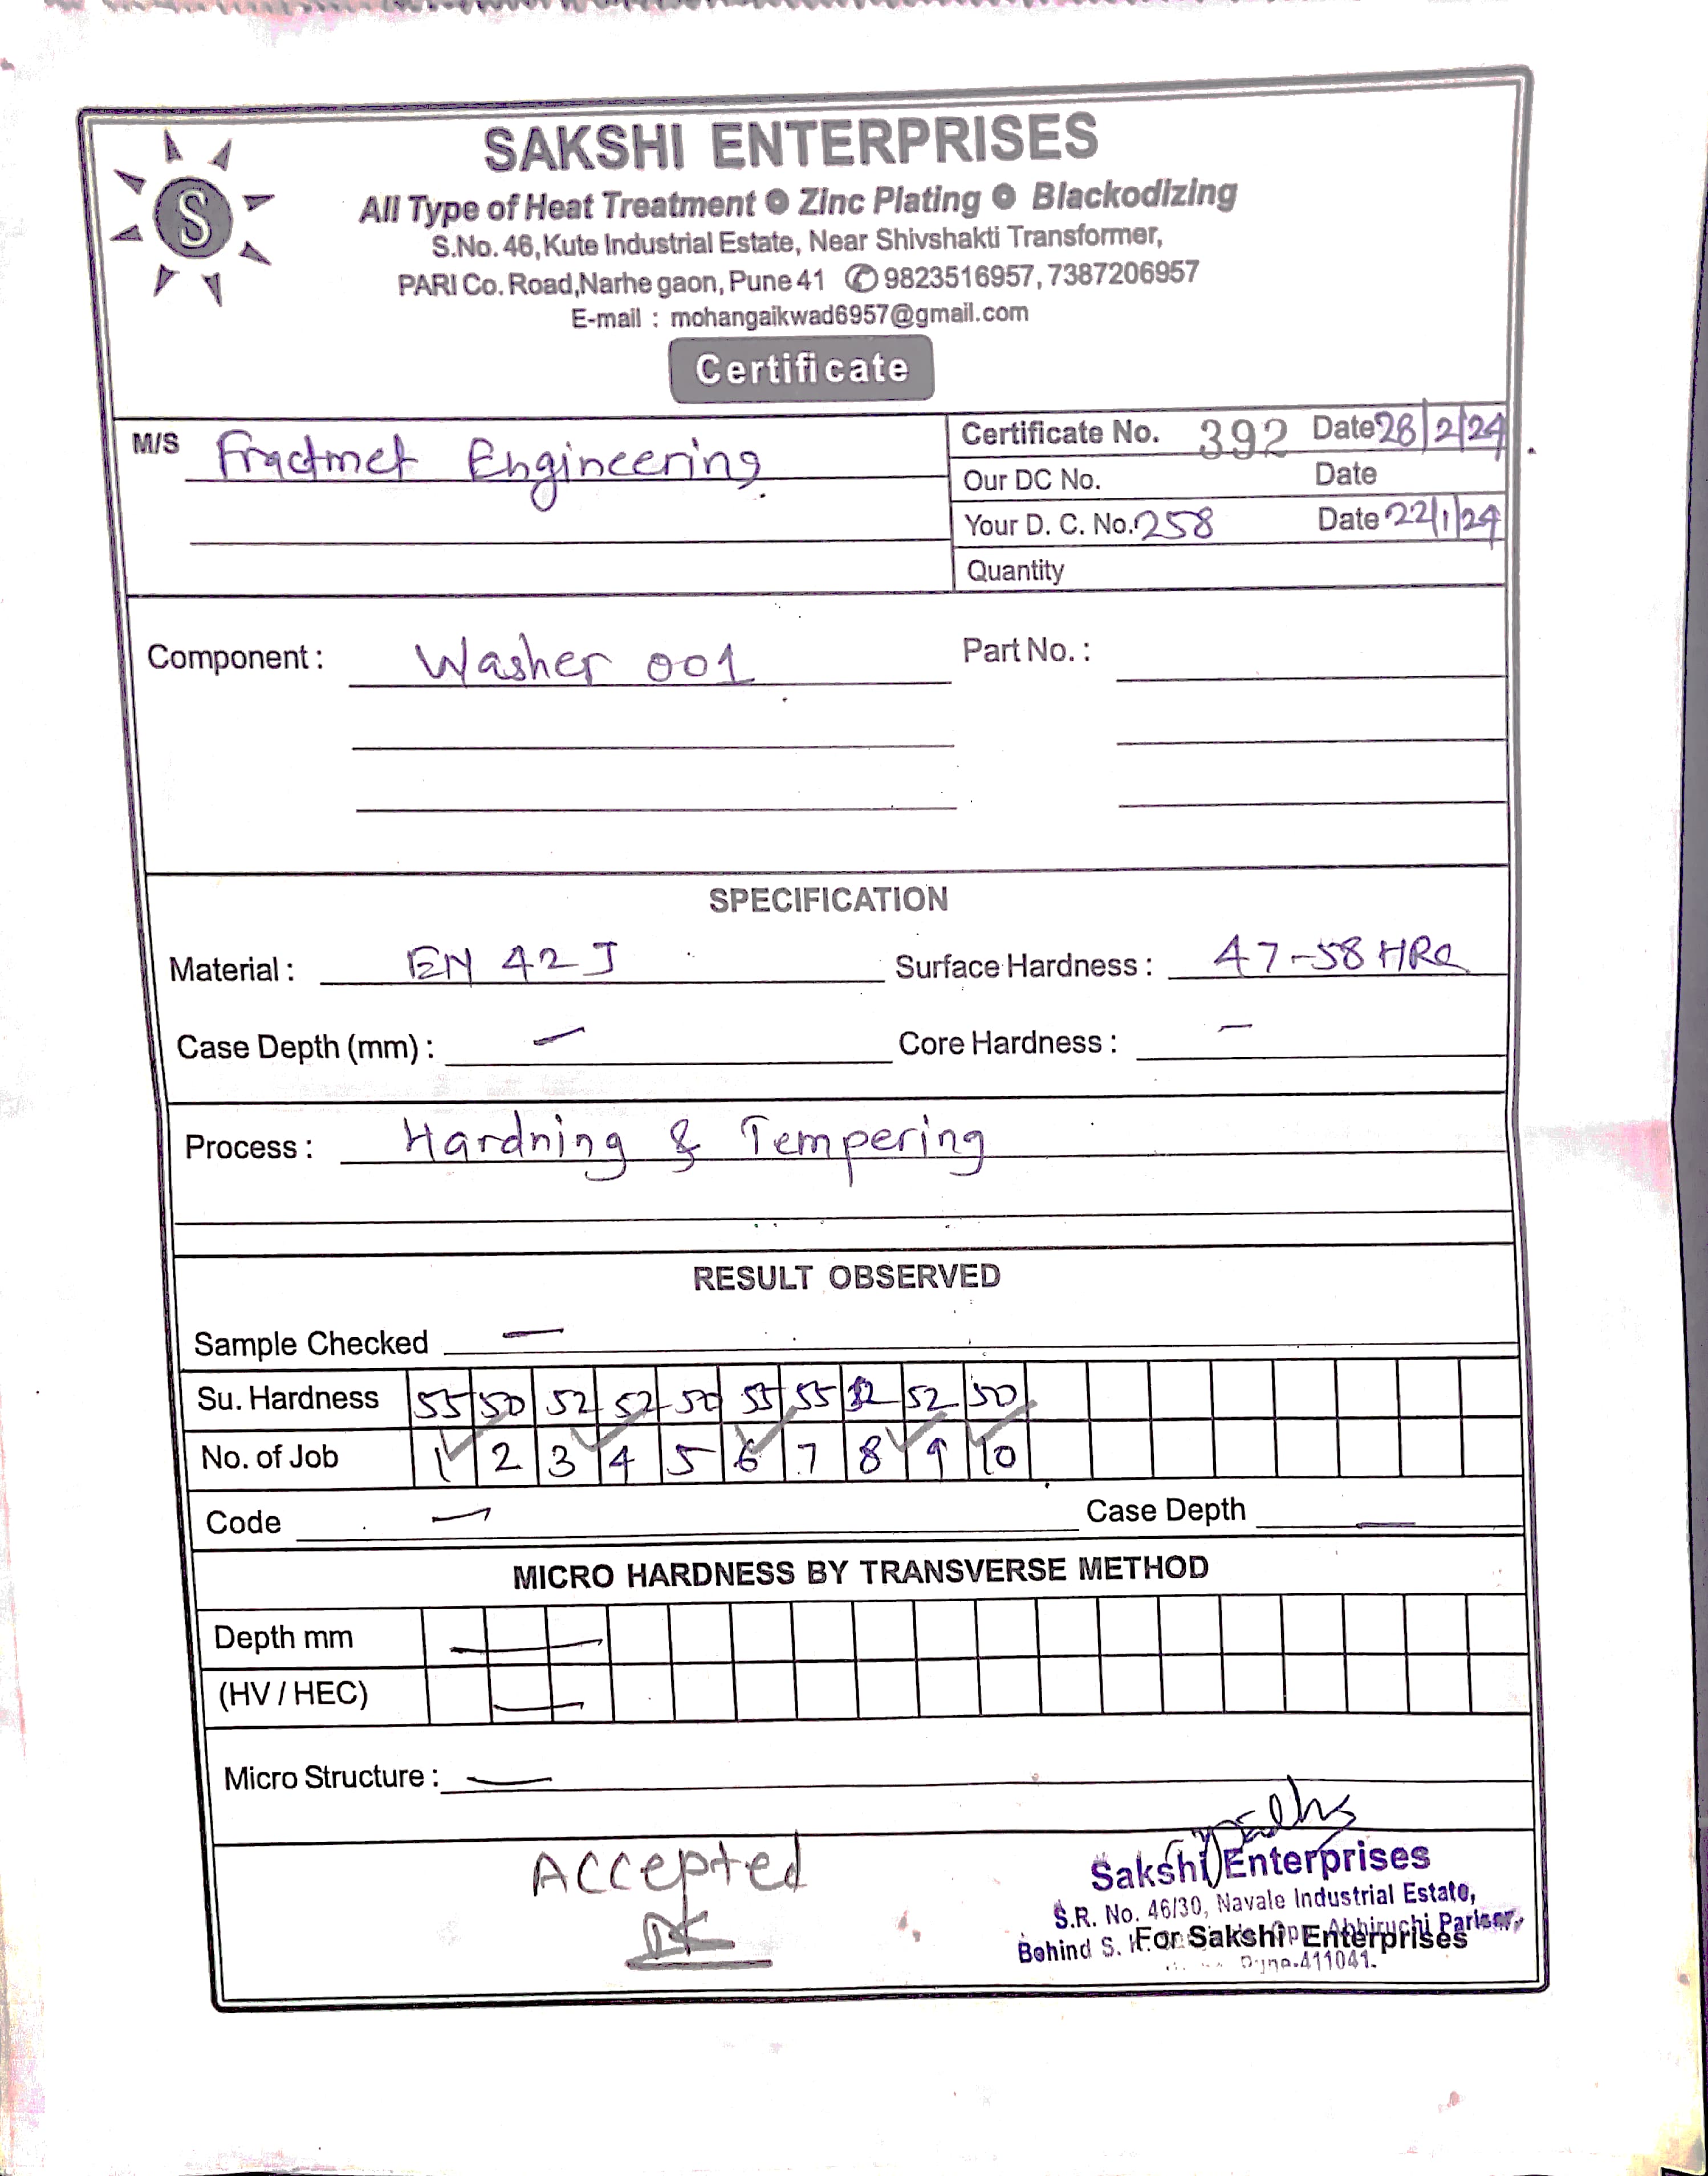 S
SAKSHI ENTERPRISES
All Type of Heat Treatment Zinc Plating Blackodizing
S.No. 46, Kute Industrial Estate, Near Shivshakti Transformer,
PARI Co. Road, Narhe gaon, Pune 41 ✆ 9823516957, 7387206957
E-mail : mohangaikwad6957@gmail.com
Certificate
M/S Fractmet Engineering.
Certificate No. 392 Date 28/2/24
Our DC No. Date
Your D. C. No. 258 Date 22/1/24
Quantity
Component : Washer 001 Part No. :
SPECIFICATION
Material : EN 42 J Surface Hardness : 47-58 HRC
Case Depth (mm) : — Core Hardness : —
Process : Hardning & Tempering
RESULT OBSERVED
Sample Checked —
Su. Hardness 55 50 52 52 50 55 55 52 52 50
No. of Job 1 2 3 4 5 6 7 8 9 10
Code — Case Depth —
MICRO HARDNESS BY TRANSVERSE METHOD
Depth mm —
(HV / HEC) —
Micro Structure : —
Accepted
Sakshi Enterprises
S.R. No. 46/30, Navale Industrial Estate,
Behind S. Abhiruchi Parisar,
For Sakshi Enterprises
Pune-411041.